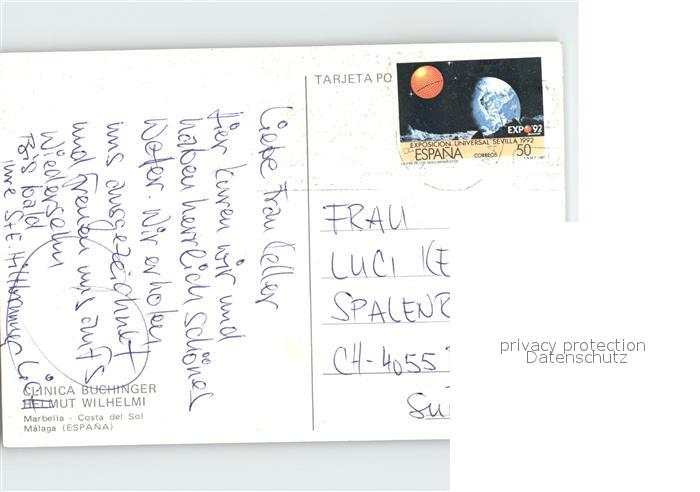 Liebe Frau Keller
hier kuren wir und
haben herrlich schönes
Weter. Wir erholen
uns ausgezeichnet
und freuen uns aufs
Wiedersehn
Bis bald
Ihre
CLINICA BUCHINGER
HELMUT WILHELMI
Marbella - Costa del Sol
Málaga (ESPAÑA)
TARJETA PO
EXPO 92
EXPOSICION UNIVERSAL SEVILLA 1992
ESPAÑA CORREOS 50
LA ERA DE LOS DESCUBRIMIENTOS
FRAU
LUCI KE
SPALENR
CH-4055
privacy protection
Datenschutz